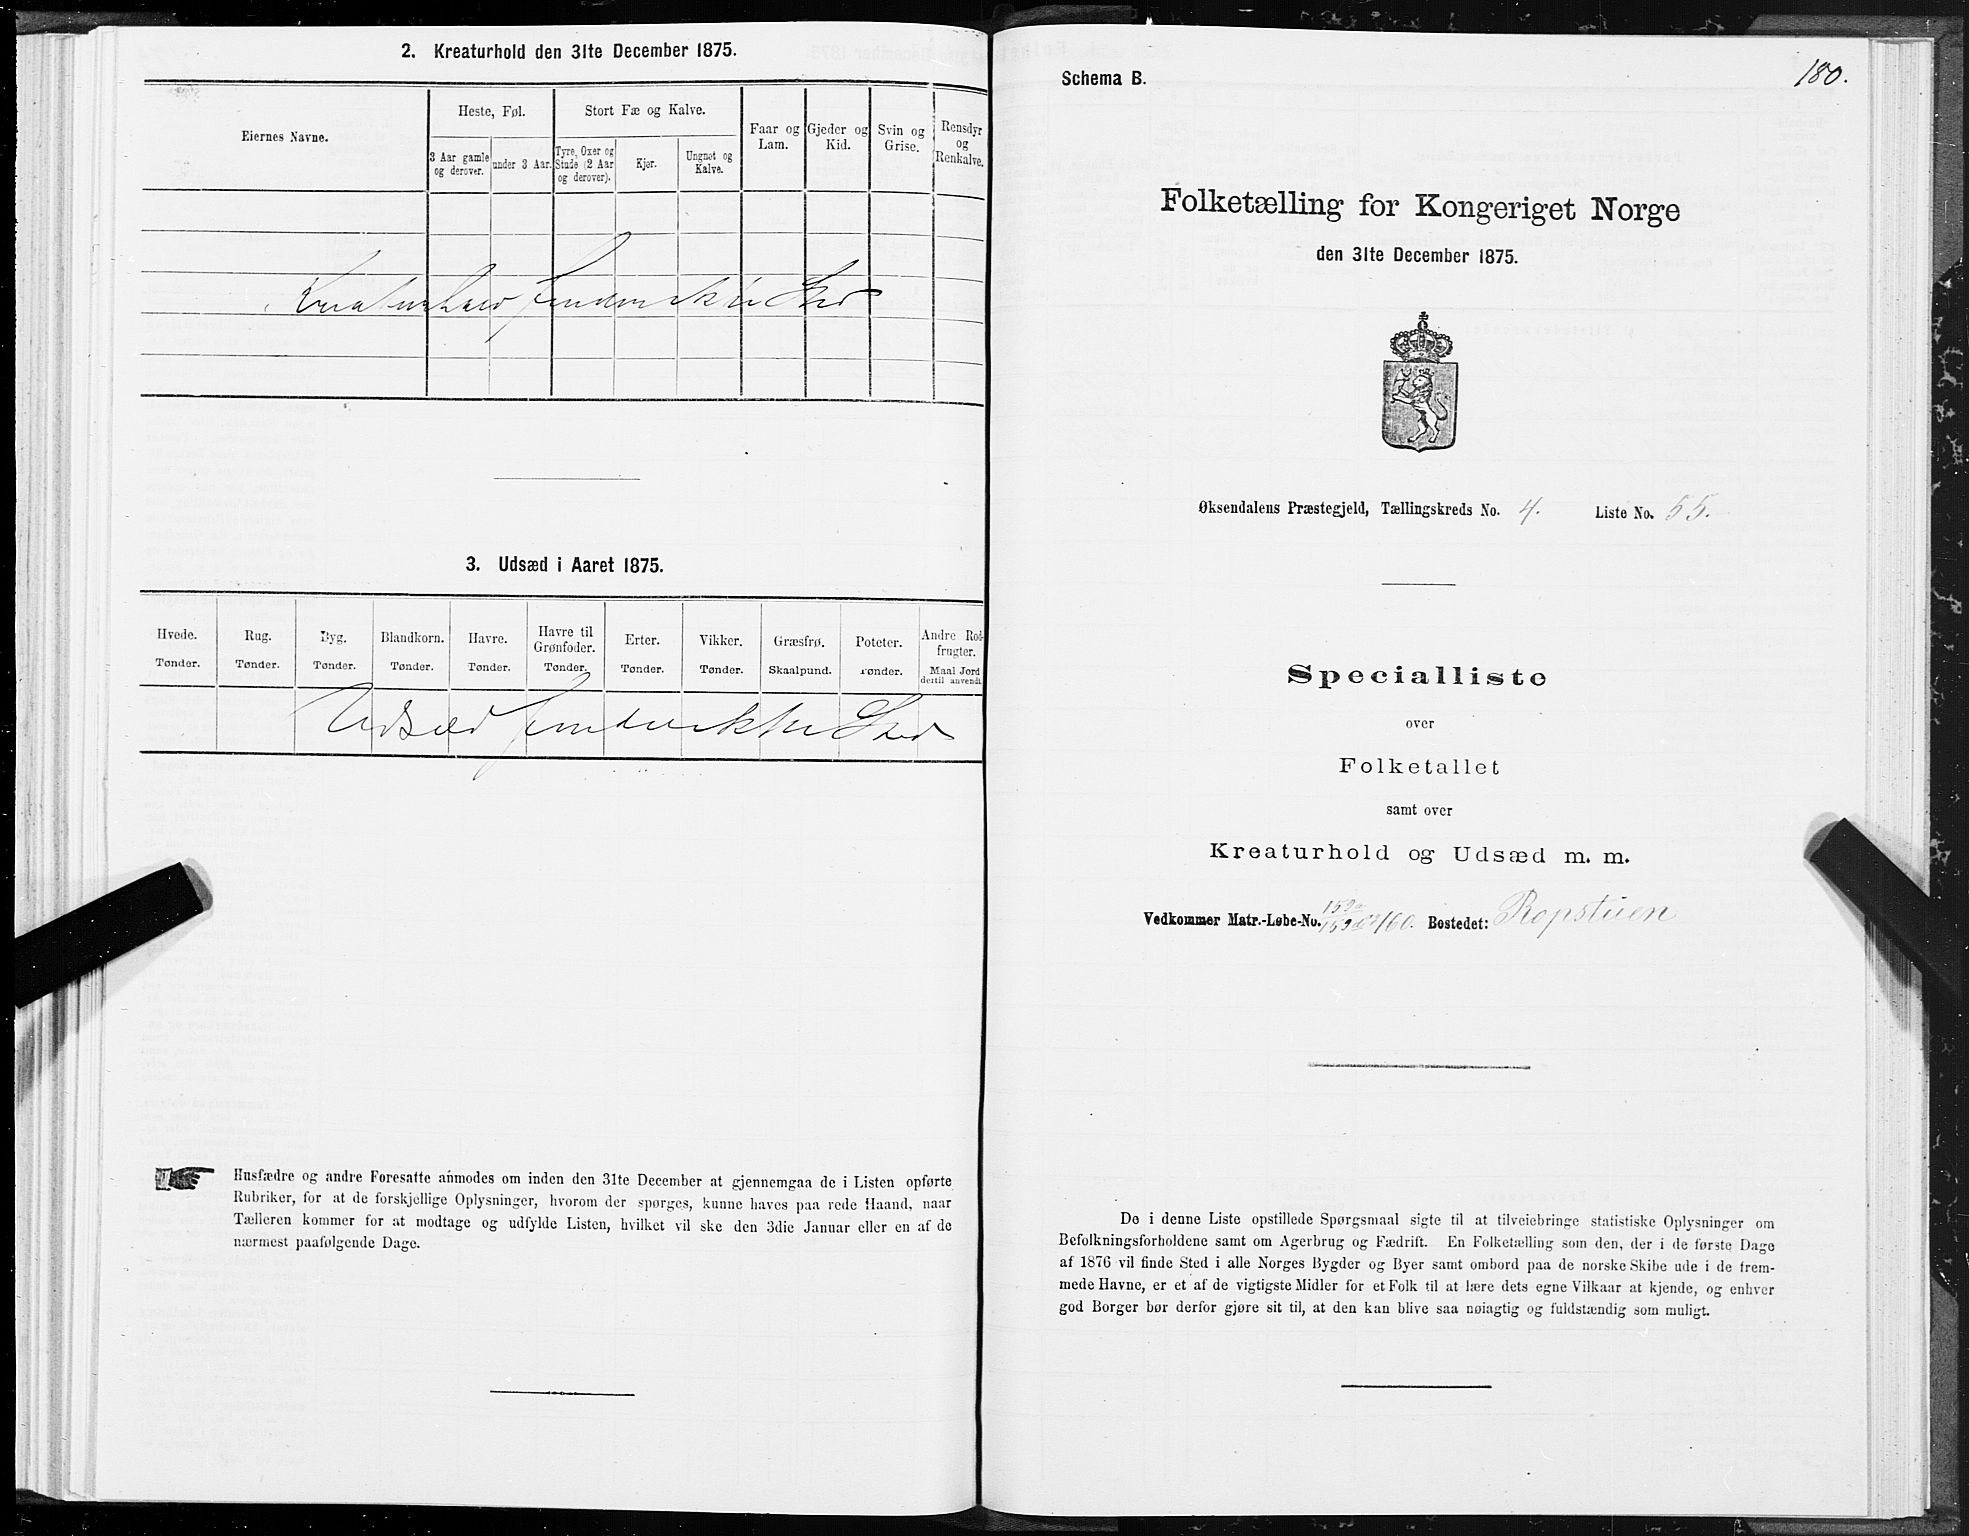 2. Kreaturhold den 31te December 1875.
Eiernes Navne.
Heste, Føl.
Stort Fæ og Kalve.
Faar og Lam.
Gjeder og Kid.
Svin og Grise.
Rensdyr og Renkalve.
3 Aar gamle og derover.
under 3 Aar.
Tyre, Oxer og Stude (2 Aar og derover).
Kjør.
Ungnøt og Kalve.
Kreaturhold finder ikke Sted
3. Udsæd i Aaret 1875.
Hvede. Rug. Byg. Blandkorn. Havre. Havre til Grønfoder. Erter. Vikker. Græsfrø. Poteter. Andre Rodfrugter.
Tønder. Tønder. Tønder. Tønder. Tønder. Tønder. Tønder. Tønder. Skaalpund. Tønder. Maal Jord dertil anvendt
Udsæd finder ikke Sted
Husfædre og andre Foresatte anmodes om inden den 31te December at gjennemgaa de i Listen opførte
Rubriker, for at de forskjellige Oplysninger, hvorom der spørges, kunne haves paa rede Haand, naar
Tælleren kommer for at modtage og udfylde Listen, hvilket vil ske den 3die Januar eller en af de
nærmest paafølgende Dage.
Schema B.
180.
Folketælling for Kongeriget Norge
den 31te December 1875.
Øksendalens Præstegjeld, Tællingskreds No. 4. Liste No. 55.
Specialliste
over
Folketallet
samt over
Kreaturhold og Udsæd m. m.
Vedkommer Matr.-Løbe-No. 159a 160. Bostedet: Ropstuen
De i denne Liste opstillede Spørgsmaal sigte til at tilveiebringe statistiske Oplysninger om
Befolkningsforholdene samt om Agerbrug og Fædrift. En Folketælling som den, der i de første Dage
af 1876 vil finde Sted i alle Norges Bygder og Byer samt ombord paa de norske Skibe ude i de frem-
mede Havne, er et af de vigtigste Midler for et Folk til at lære dets egne Vilkaar at kjende, og enhver
god Borger bør derfor gjøre sit til, at den kan blive saa nøiagtig og fuldstændig som muligt.